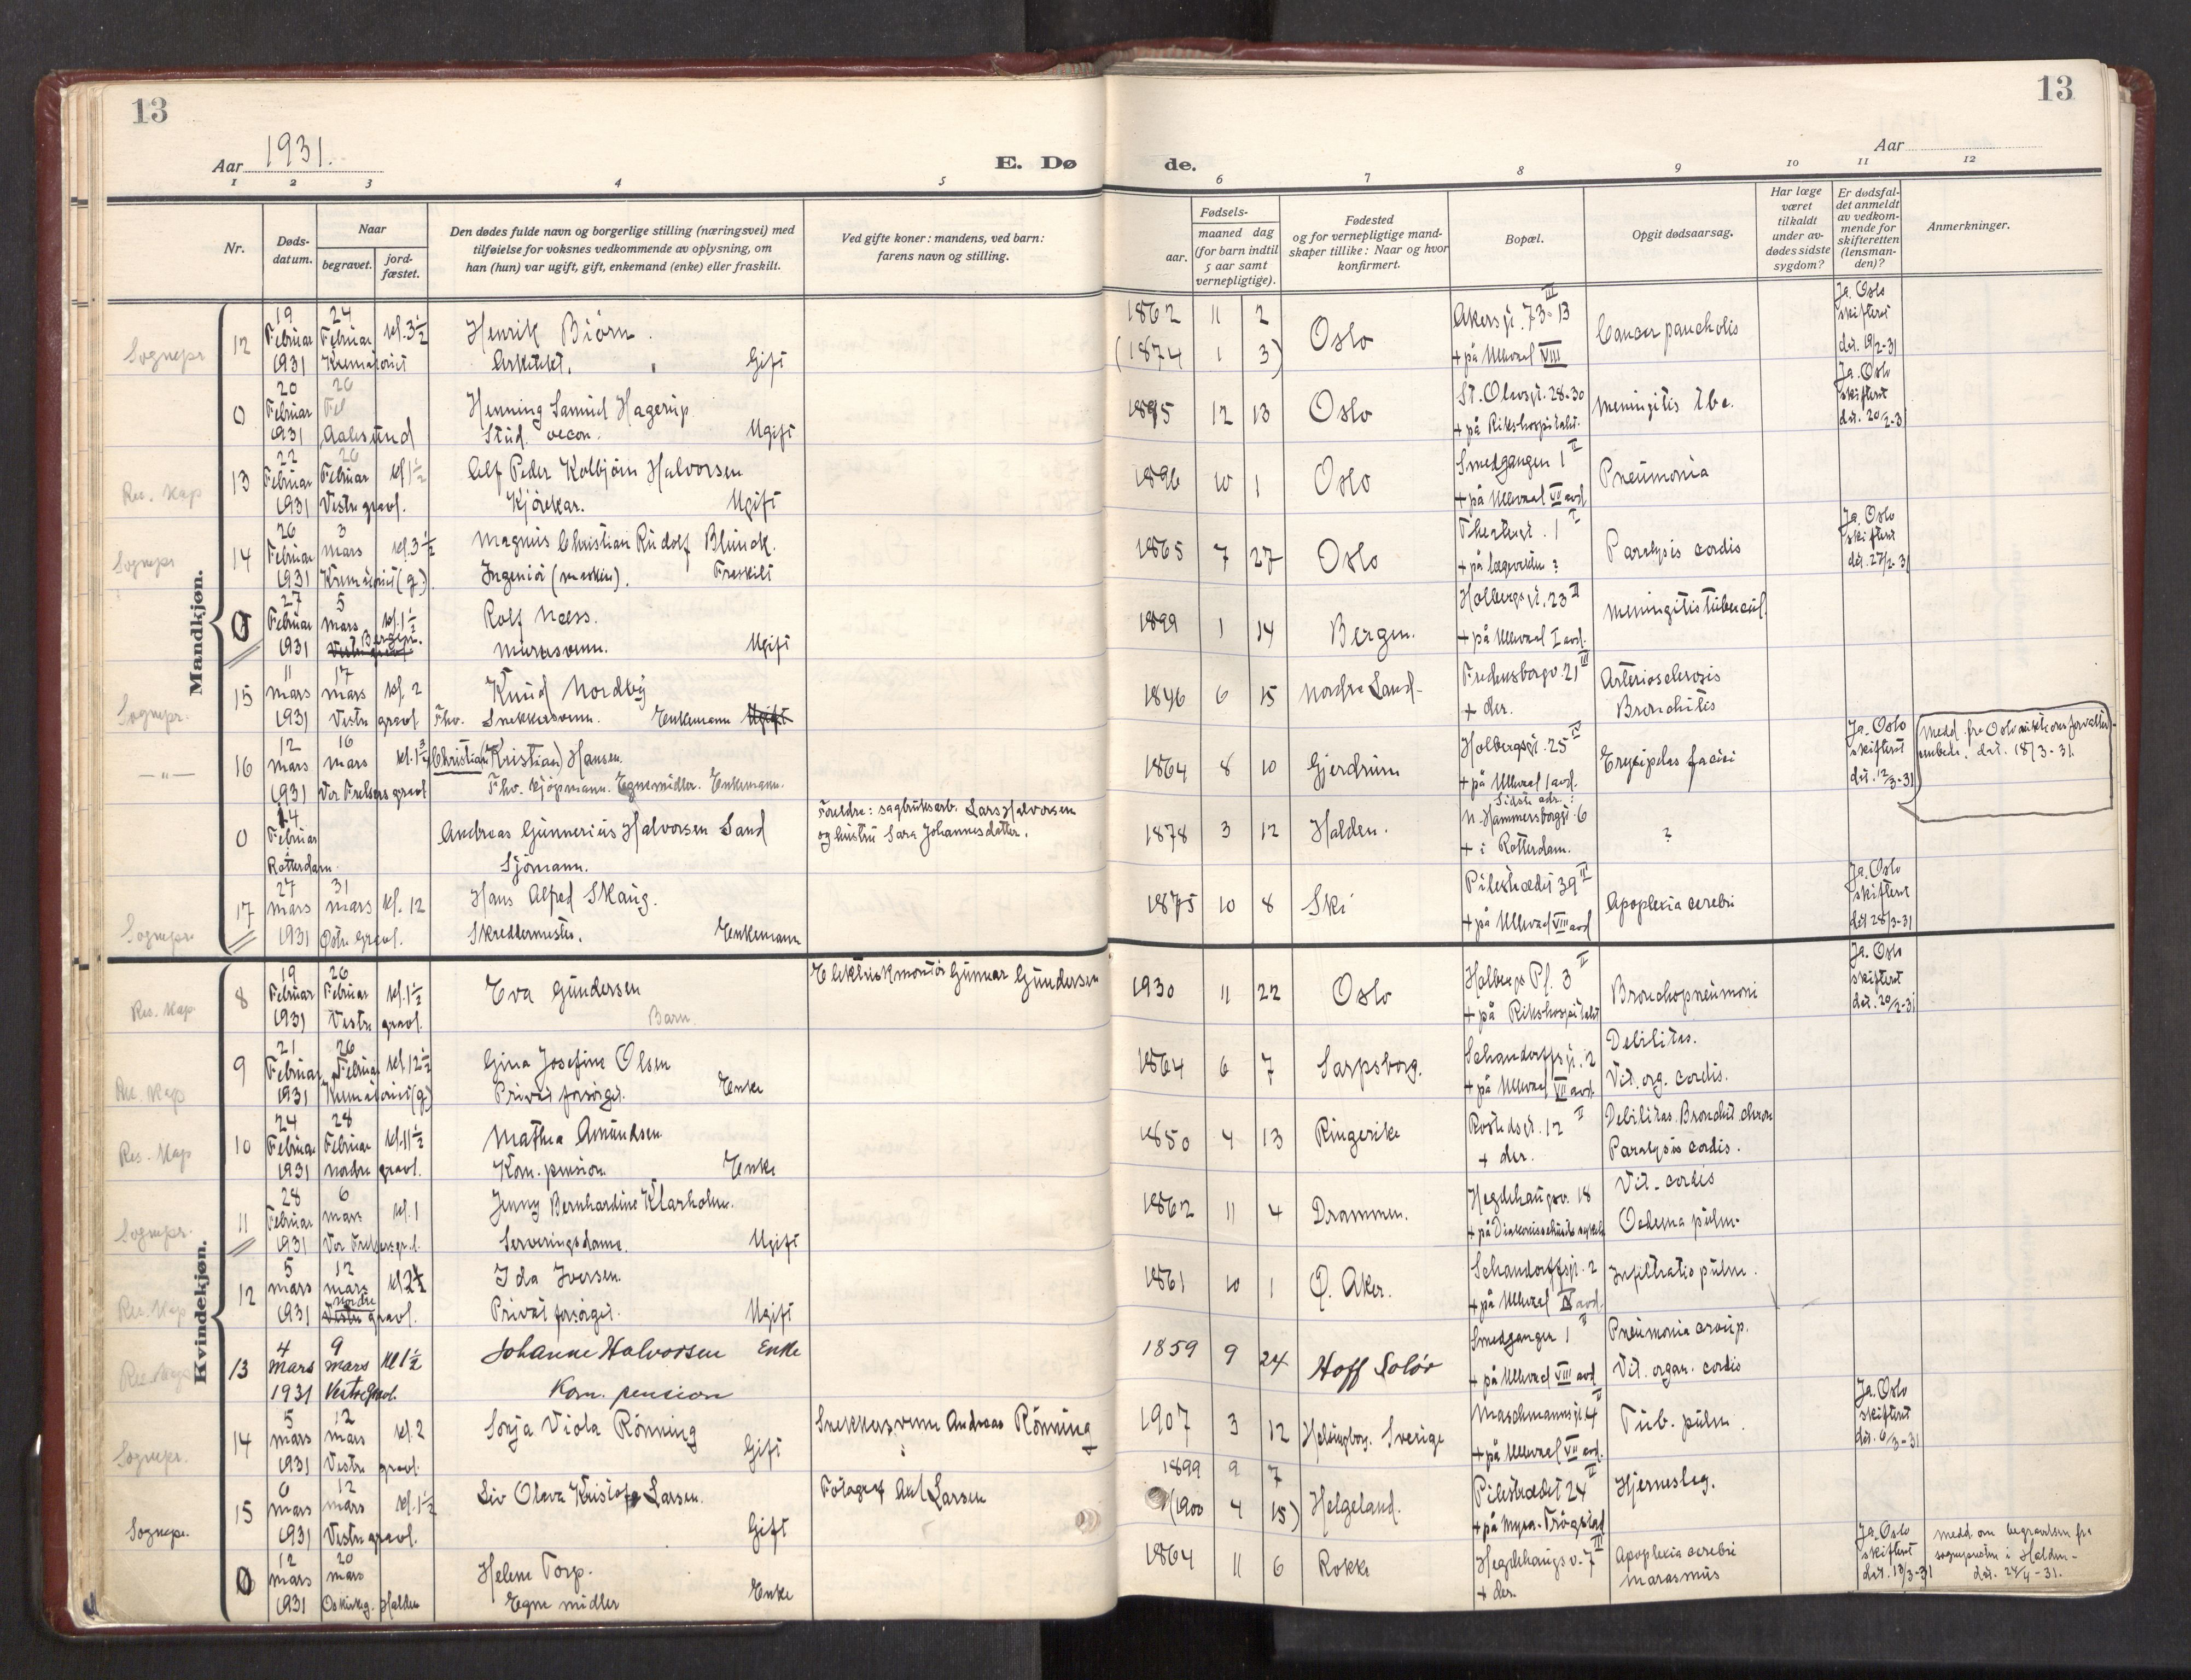 13
13
Aar 1931.
E. Dø
de.
Aar
1 2 3 4 5
6 7 8 9 10 11 12
Nr.
Døds-
datum.
Naar
begravet.
jord-
fæstet.
Den dødes fulde navn og borgerlige stilling (næringsvei) med
tilføielse for voksnes vedkommende av oplysning, om
han (hun) var ugift, gift, enkemand (enke) eller fraskilt.
Ved gifte koner: mandens, ved barn:
farens navn og stilling.
Fødsels-
aar.
maaned dag
(for barn indtil
5 aar samt
vernepligtige).
Fødested
og for vernepligtige mand-
skaper tillike: Naar og hvor
konfirmert.
Bopæl.
Opgit dødsaarsag.
Har læge
været
tilkaldt
under av-
dødes sidste
sygdom?
Er dødsfal-
det anmeldt
av vedkom-
mende for
skifteretten
(lensman-
den)?
Anmerkninger.
Mandkjøn.
Sognepr
12
19 Februar 1931
24 Februar Krematoriet
kl. 3½
Henrik Biörn.
Arkitekt. Gift
1862 11 2
(1874 1 3)
Oslo
Akersgt. 73 III - 13
+ på Ullevaal VIII
Cancer
Ja. Oslo
skifteret
det. 19/2-31
0
20 Februar 1931
26 Feb
Aalesund
Henning Samuel Hagerup
Stud. oecon. Ugift
1895 12 13
Oslo
St. Olavsgt. 28-30
+ på Rikshospitalet.
Meningitis tbc.
Ja. Oslo
skifteret
det. 20/2-31
Res. Kap
13
22 Februar 1931
26 Februar Vestre gravl.
kl 1½
Alf Peder Kolbjörn Halvorsen
Kjörekar. Ugift
1896 10 1
Oslo
Smedgangen 1 II
+ på Ullevaal VII avd
Pneumonia
Sognepr
14
26 Februar 1931
3 mars Krematoriet (g.)
kl. 3½
Magnus Christian Rudolf Blunck.
Ingeniör (maskin). Fraskilt
1865 7 27
Oslo
1 I
Paralysis cordis
Ja. Oslo
skifteret
det. 27/2-31
0
27 Februar 1931
5 mars Bergen.
Vestre gravl.
kl. 1½
Rolf Næss.
Murersvenn. Ugift
1899 1 14
Bergen.
Holbergsgt. 23 II
+ på Ullevaal I avd.
Meningitis tubercul.
Sognepr.
15
11 mars 1931
17 mars Vestre gravl.
kl. 2
Knud Nordby
Fhv. Snekkersvenn. Enkemann Ugift
1846 6 15
Nordre Land
Fredensborgv. 21 III
+ der.
Arteriosclerosis
Bronchitis
— " —
16
12 mars 1931
16 mars Vor Frelsers gravl
kl. 1¾
Christian (Kristian) Hansen.
Fhv. kjöpmann. Egne midler. Enkemann.
1864 8 10
Gjerdrum
Holbergsgt. 25 II
+ på Ullevaal 1 avd.
Erysipelas faciei
Ja. Oslo
skifteret
det. 12/3-31
0
14 Februar
Rotterdam.
Andreas Gunnerius Halvorsen Sand
Sjömann.
Foreldre: sagbruksarb. Lars Halvorsen
og hustru Sara Johannesdatter.
1878 3 12
Halden.
Sidste adr.:
N. Hammersborggt. 6
+ i Rotterdam.
?
det. 18/3-31.
Sognepr
17
27 mars 1931
31 mars Östre gravl.
kl. 12
Hans Alfred Skaug.
Skreddermester. Enkemann
1875 10 8
Ski
Pilestrædet 39 II
+ på Ullevaal VIII avd
Apoplexia cerebri
Ja. Oslo
skifteret
det 28/3-31
Kvindekjøn.
Res. Kap
8
19 Februar 1931
26 Februar Vestre gravl.
kl. 1½
Eva Gundersen
Barn.
Elektriskmontör Gunnar Gundersen
1930 11 22
Oslo
Holbergs Pl. 3 II
+ på Rikshospitalet
Bronchopneumoni
Ja. Oslo
skifteret
det. 20/2-31
Res. Kap
9
21 Februar 1931
26 Februar Krematoriet (g)
kl 12½
Gina Josefine Olsen
Privat forsörget. Enke
1864 6 7
Sarpsborg.
Schandorffsgt. 2
+ på Ullevaal VII avd.
Debilitas.
Vit. org. cordis.
Res. Kap
10
24 Februar 1931
28 Februar Nordre gravl.
kl. 11½
Mathea Amundsen
Kom. pension. Enke
1850 4 13
Ringerike
Rostedsgt. 12 II
+ der.
Debilitas. Bronchit chron
Paralysis cordis.
Sognepr.
11
28 Februar 1931
6 mars Vor Frelsers gravl.
kl. 1
Jenny Bernhardine Klarholm.
Serveringsdame. Ugift
1862 11 4
Drammen.
Hegdehaugsv. 18
Vit. cordis
Oedema pulm.
Res. Kap
12
5 mars 1931
12 mars Nordre
Vestre gravl.
kl 2½
Ida Iversen.
Privat forsörget. Ugift
1861 10 1
Ö. Aker.
Schandorffsgt. 2
+ på Ullevaal IV avd.
Infiltratio pulm.
Res. Kap
13
4 mars 1931
9 mars Vestre gravl.
kl 1½
Johanne Halvorsen Enke
Kom. pension
1859 9 24
Hoff Solör
Smedgangen 1 II
+ på Ullevaal VIII avd
Pneumonia croup.
Vit. organ. cordis
Sognepr.
14
5 mars 1931
12 mars Vestre gravl.
kl. 2
Sonja Viola Rönning
Gift
Snekkersvenn Andreas Rönning
1907 3 12
Helsingborg. Sverige
Maschmannsgt. 4 II
+ på Ullevaal VII avd.
Tub. pulm.
Ja. Oslo
skifteret
det. 6/3-31
Sognepr.
15
6 mars 1931
12 mars Vestre gravl.
kl. 1½
Liv Olava Larsen.
Gift
Fotograf Larsen
1899 9 7
(1900 4 15)
Helgeland.
Pilestrædet 24 II
Hjerneslag.
0
12 mars 1931
20 mars Halden
Helene Torp.
Egne midler Enke
1864 11 6
Rokke
Hegdehaugsv. 7 III
+ der.
Apoplexia cerebri
Marasmus
Ja. Oslo
skifteret
det. 13/3-31
Medd om begravelsen fra
sognepresten i Halden -
det. 24/4-31.